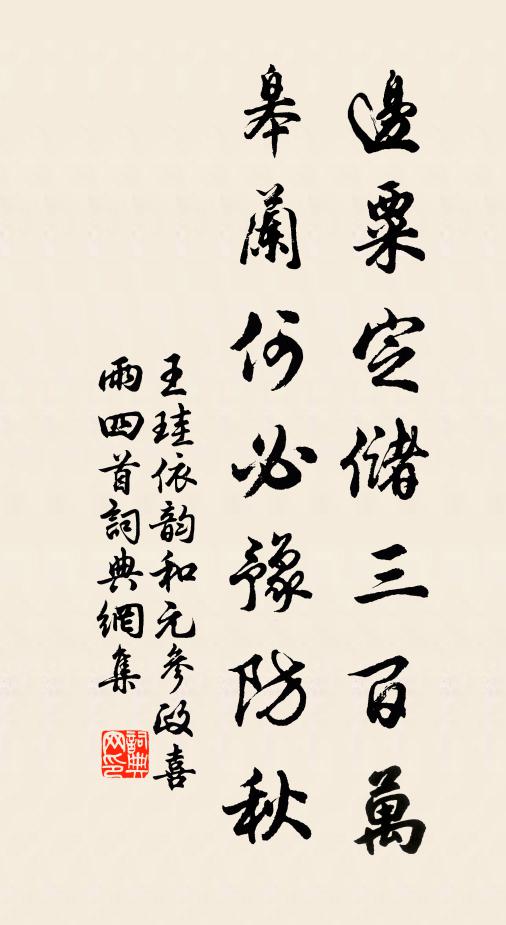 邊粟定儲三百萬
皋蘭何必豫防秋
王珪依韵和元參政喜
雨四首詞典網集
詞典
网印